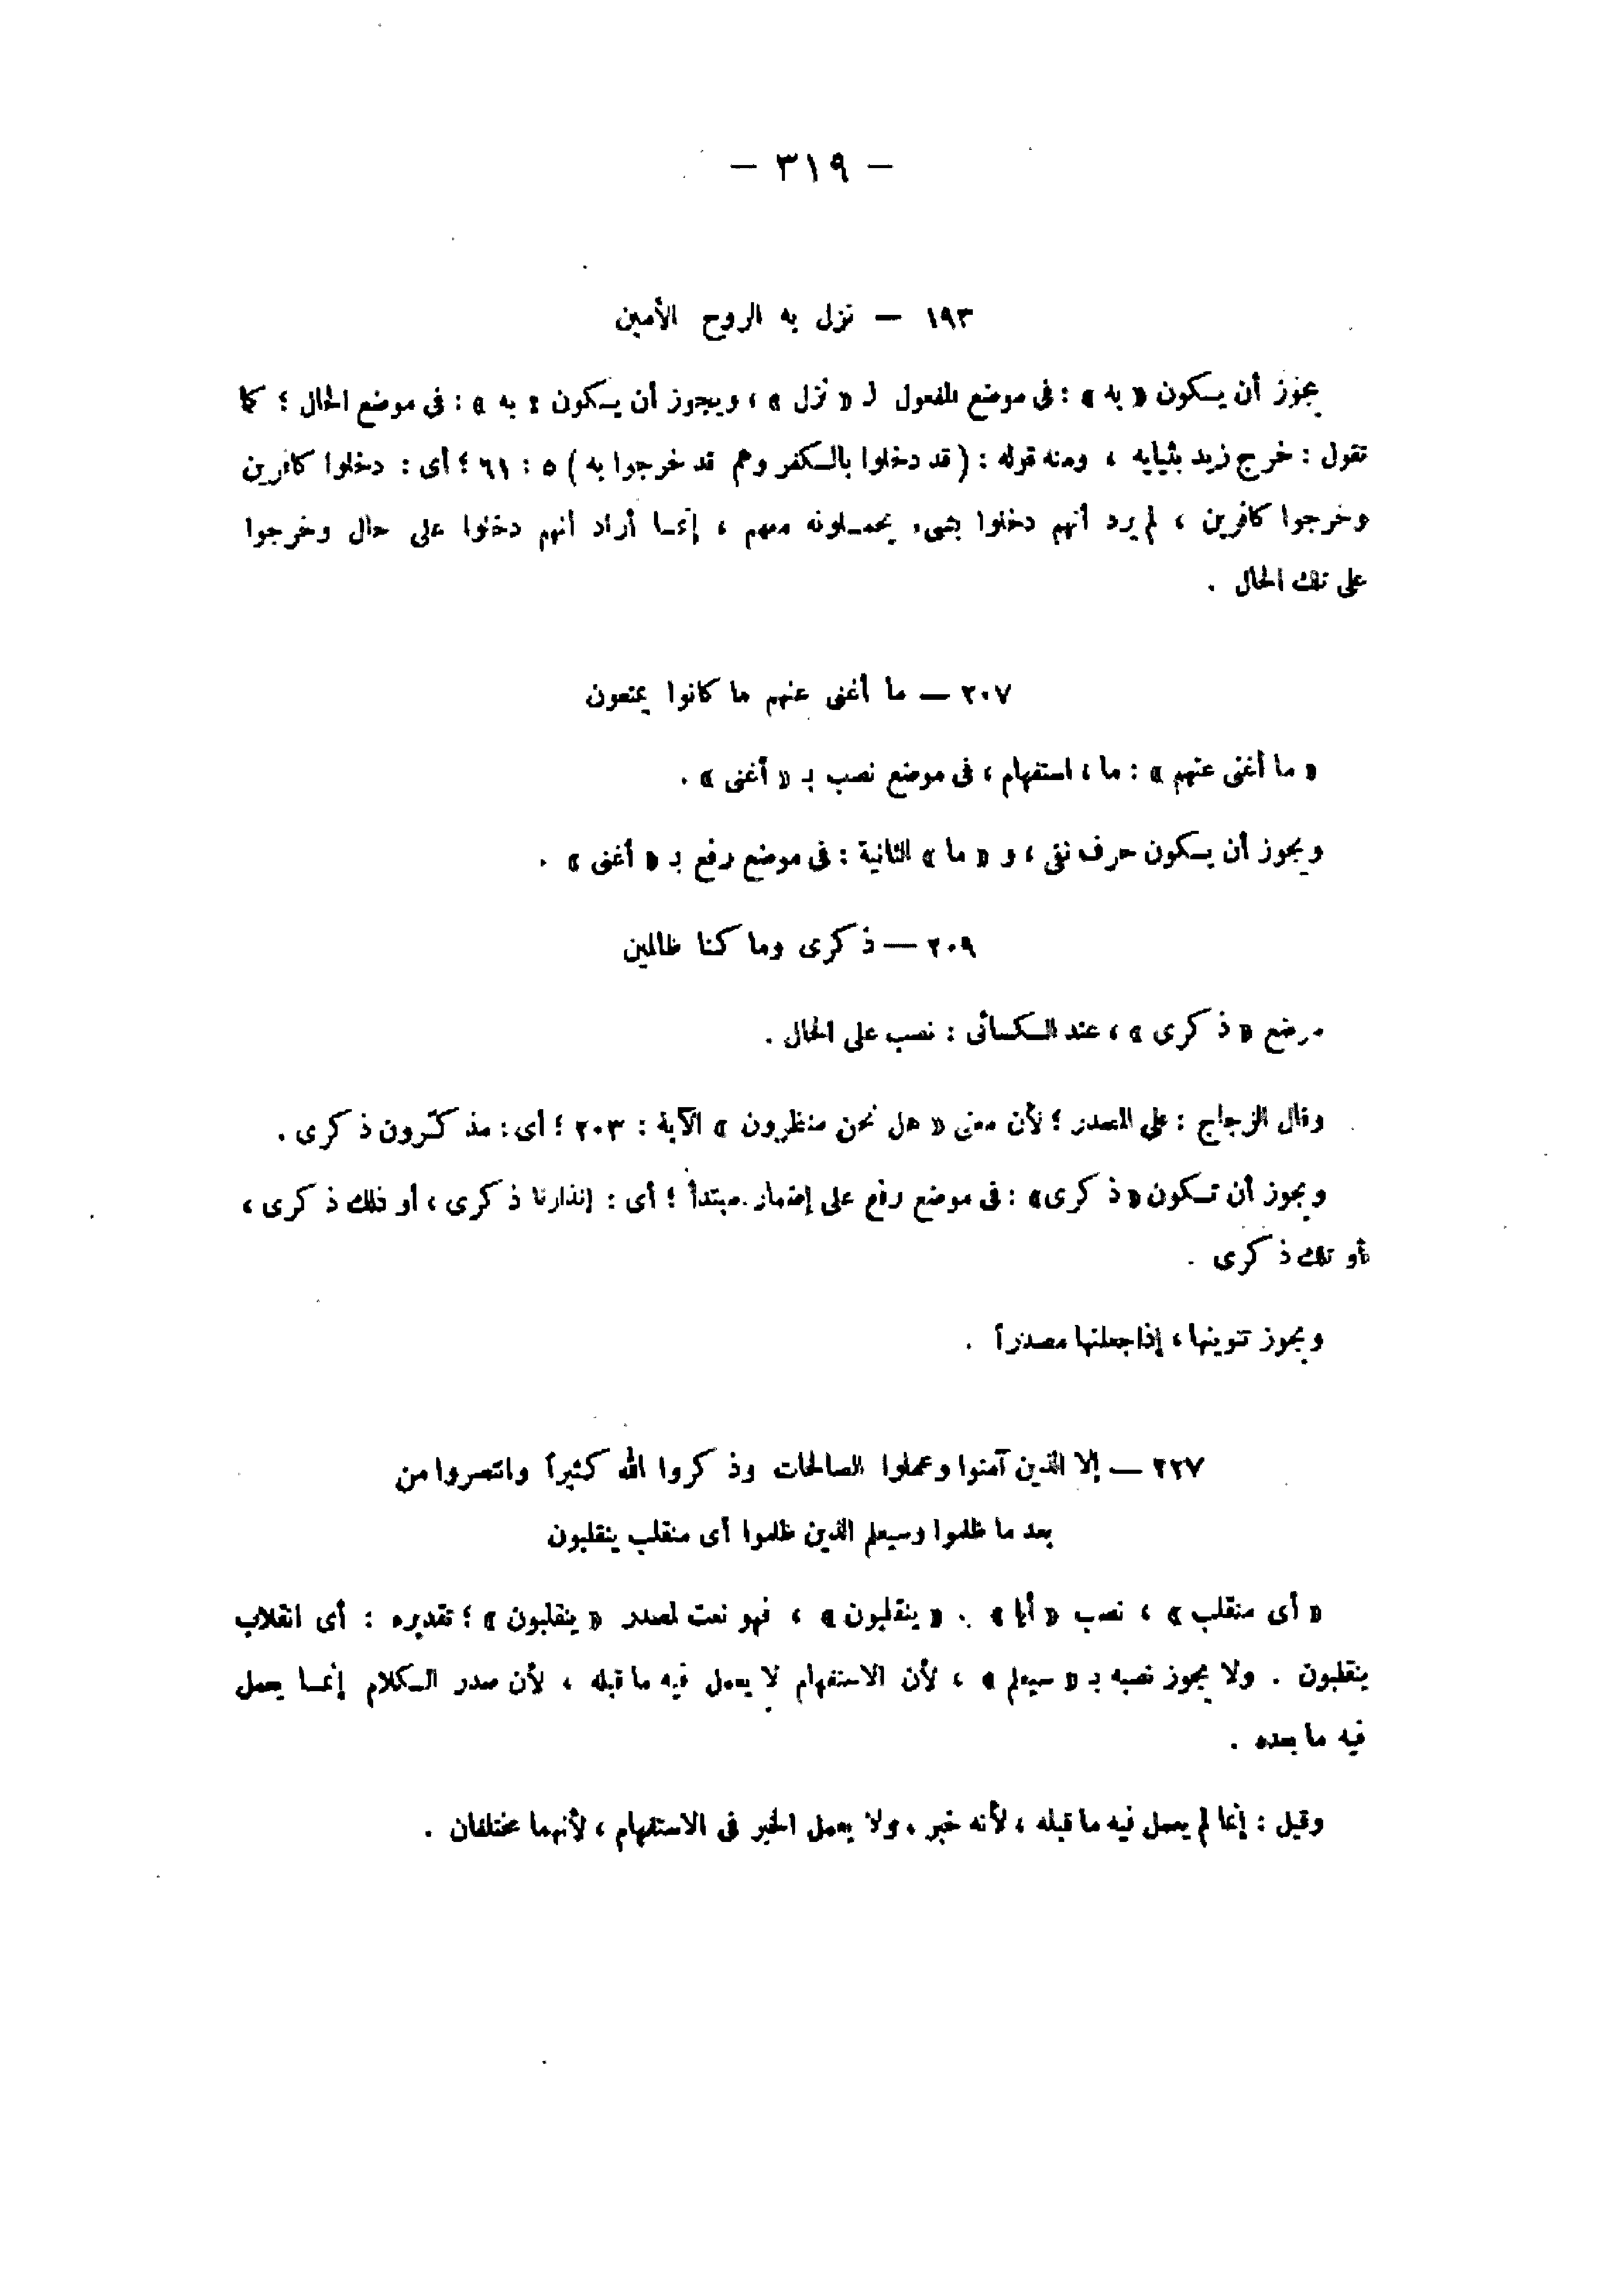 — ٣١٩ —
١٩٣ — نزل به الروح الأمين
يجوز أن يكون « به » : فى موضع المفعول لـ « نزل » ، ويجوز أن يكون « به » : فى موضع الحال ؛ كما
تقول : خرج زيد بثيابه ، ومنه قوله : ( قد دخلوا بالكفر وهم قد خرجوا به ) ٥ : ٦١ ؛ أى : دخلوا كافرين
وخرجوا كافرين ، لم يرد أنهم دخلوا بشىء يحملونه معهم ، إنما أراد أنهم دخلوا على حال وخرجوا
على تلك الحال .
٢٠٧ — ما أغنى عنهم ما كانوا يمتعون
« ما أغنى عنهم » : ما ، استفهام ، فى موضع نصب بـ « أغنى » .
ويجوز أن يكون حرف نفى ، و « ما » الثانية : فى موضع رفع بـ « أغنى » .
٢٠٩ — ذكرى وما كنا ظالمين
موضع « ذكرى » ، عند الكسائى : نصب على الحال .
وقال الزجاج : على المصدر ؛ لأن معنى « هل نحن منظرون » الآية : ٢٠٣ ؛ أى : مذكّرون ذكرى .
ويجوز أن تكون « ذكرى» : فى موضع رفع على إضمار مبتدأ ؛ أى : إنذارنا ذكرى ، أو ذلك ذكرى ،
أو تلك ذكرى .
ويجوز تنوينها ، إذا جعلتها مصدراً .
٢٢٧ — إلا الذين آمنوا وعملوا الصالحات وذكروا الله كثيراً وانتصروا من
بعد ما ظلموا وسيعلم الذين ظلموا أى منقلب ينقلبون
« أى منقلب » ، نصب « أيا » بـ « ينقلبون » ، فهو نعت لمصدر « ينقلبون » ؛ تقديره : أى انقلاب
ينقلبون . ولا يجوز نصبه بـ « سيعلم » ، لأن الاستفهام لا يعمل فيه ما قبله ، لأن صدر الكلام إنما يعمل
فيه ما بعده .
وقيل : إنما لم يعمل فيه ما قبله ، لأنه خبر ، ولا يعمل الخبر فى الاستفهام ، لأنهما مختلفان .